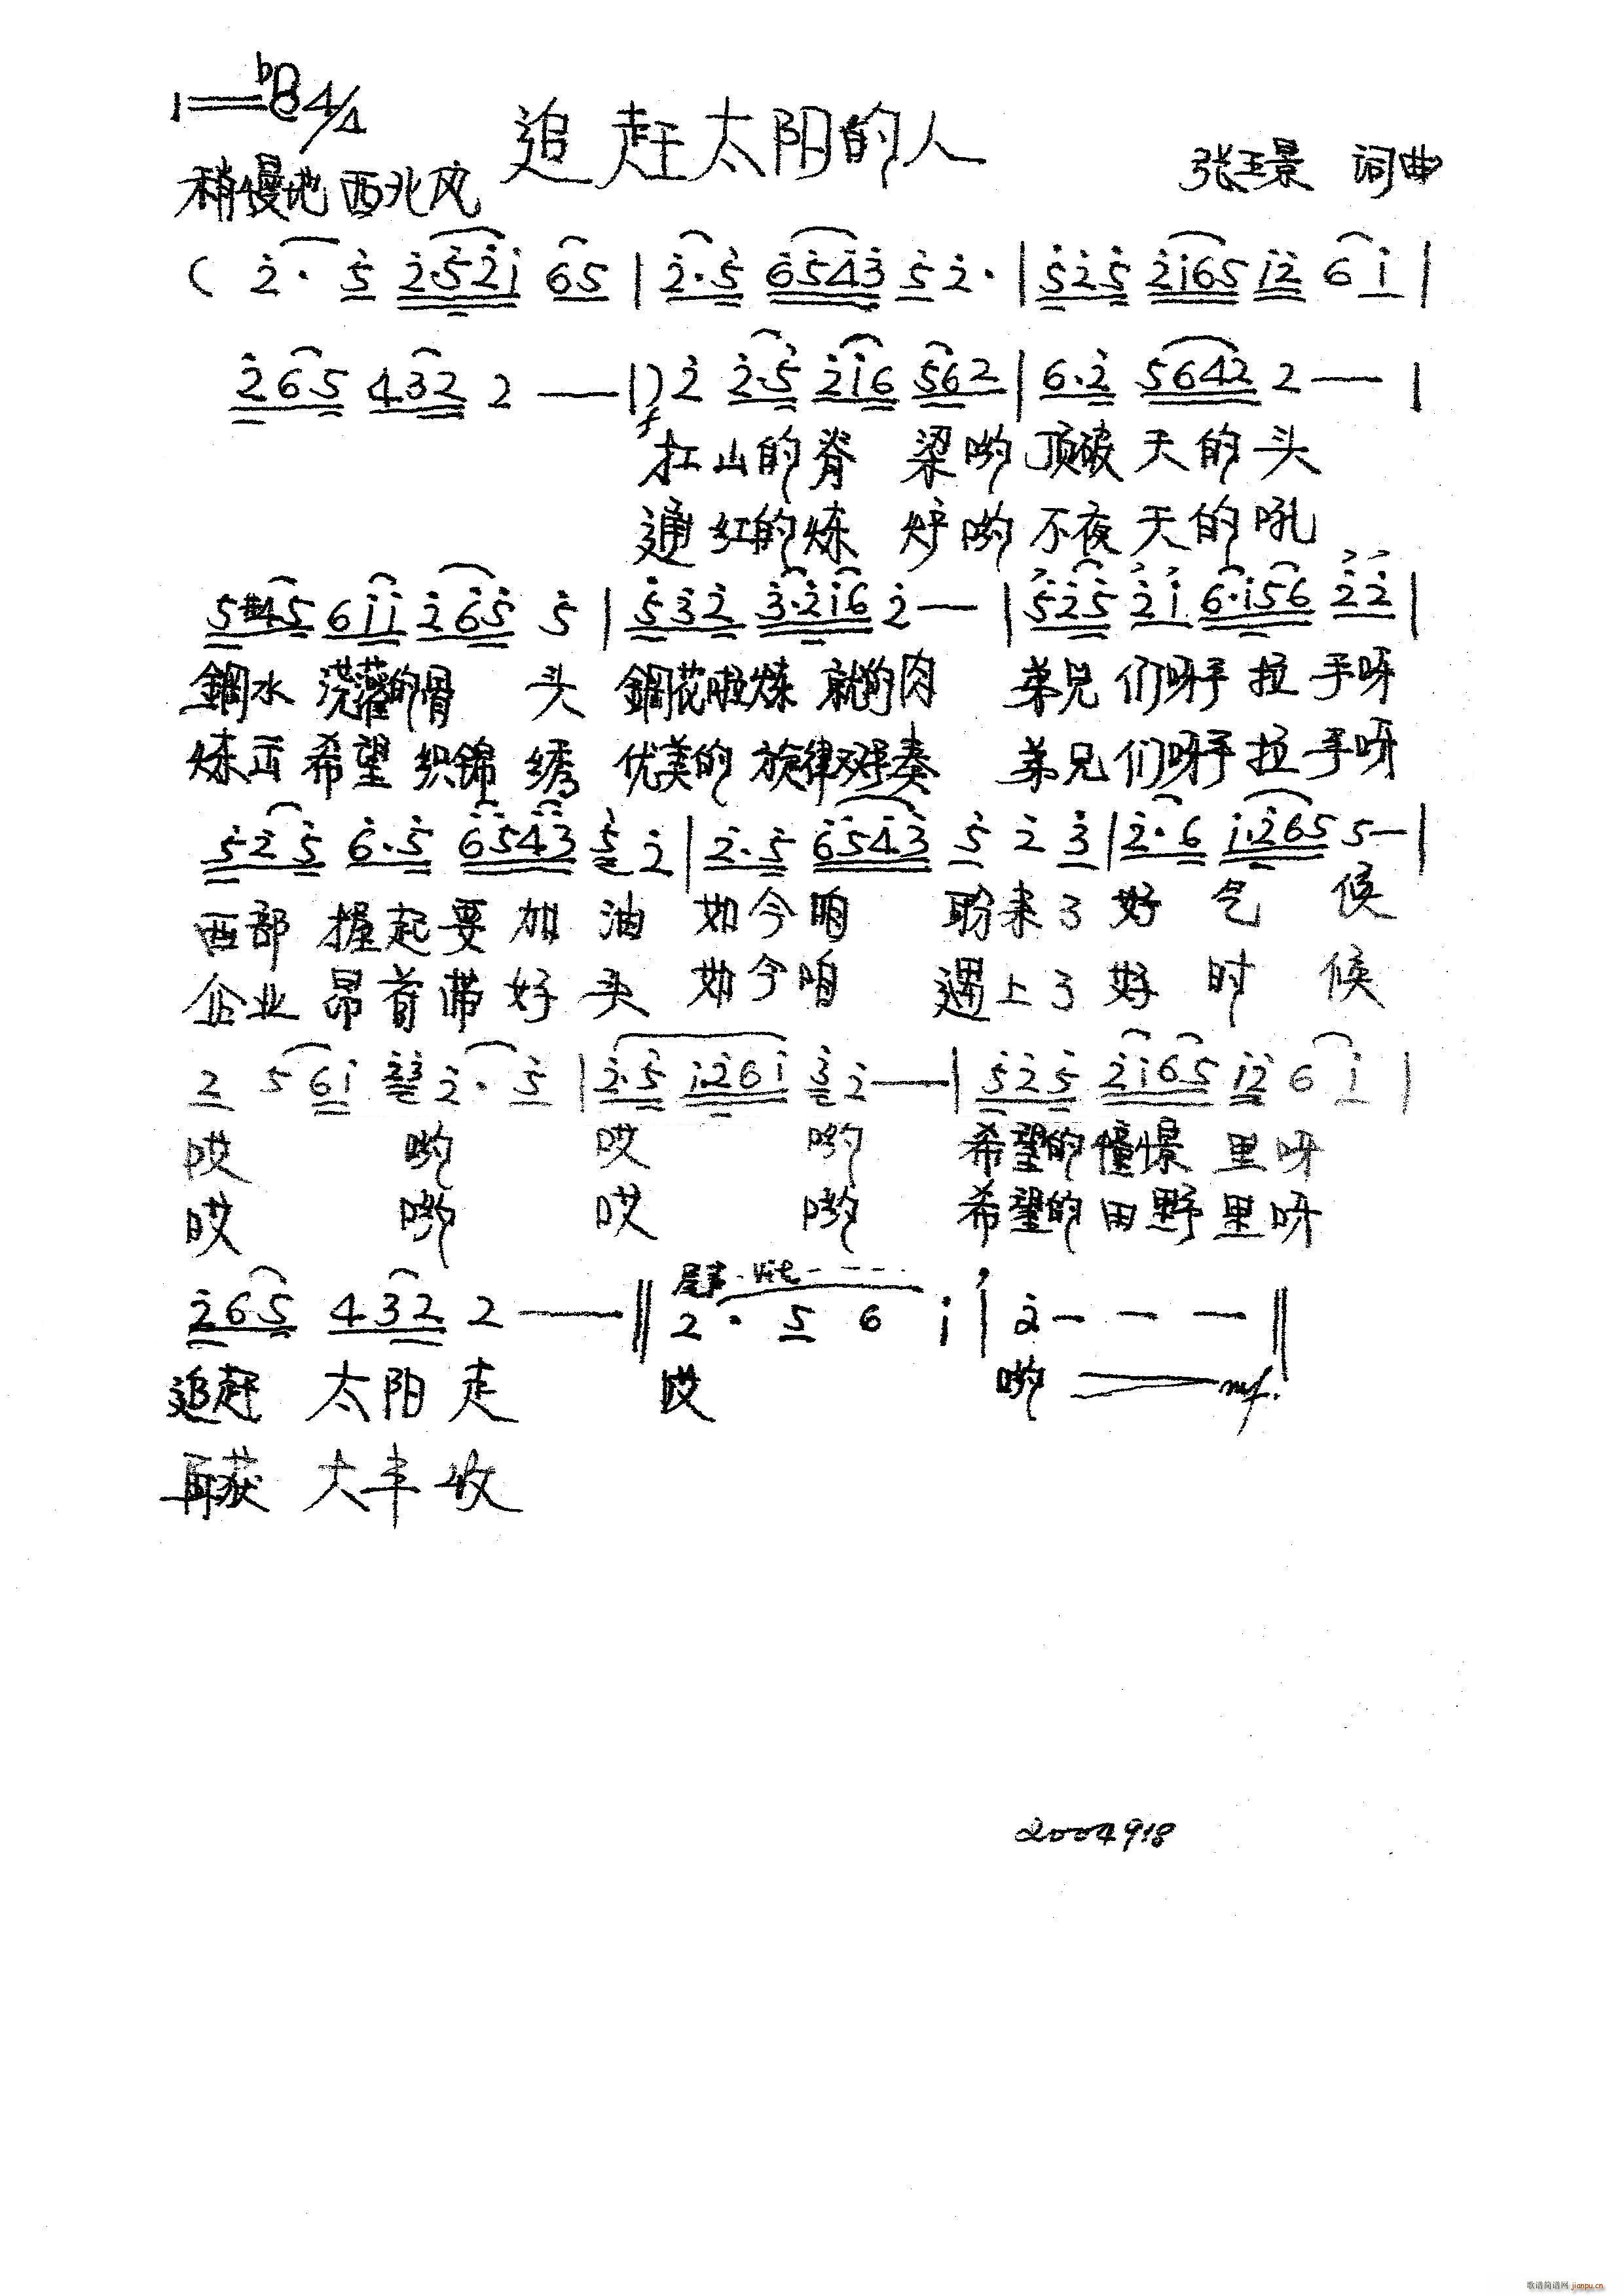 1=♭B 4/4
追赶太阳的人
稍慢地 西北风
张玉景 词曲
( 2̇· 5̇ 2̇·5̇2̇1̇ 65 | 2̇·5̇ 6̇5̇4̇3̇ 5̇ 2̇· | 5̇2̇5̇ 2̇1̇65 1̇2̇ 6 1̇ |
2̇65 432 2 — |) 2̇ 2̇·5̇ 2̇1̇6 562 | 6·2̇ 5642 2 — |
f
扛山的脊 梁哟 顶破 天的头
通红的炼 炉哟 不夜 天的吼
5#45 61̇1̇ 2̇65 5 | 5̇3̇2̇ 3̇·2̇1̇6 2̇ — | 5̇2̇5̇ 2̇1̇ 6·1̇56 2̇2̇ |
鋼水 浇灌的骨 头 鋼花啦炼 就的肉 弟兄 们呀手 拉 手呀
炼 希望 织錦 绣 优美的 旋律 奏 弟兄 们呀手 拉 手呀
5̇2̇5̇ 6̇·5̇ 6̇5̇4̇3̇ 5̇ 2̇ | 2̇·5̇ 6̇5̇4̇3̇ 5̇ 2̇ 3̇ | 2̇·6 1̇·2̇65 5— |
西部 握起要 加 油 如今咱 盼来了 好 气 候
企业 昂首带 好 头 如今咱 遇上了 好 时 候
2 5 61̇ 2̇3̇ 2̇· 5̇ | 2̇·5̇ 1̇·2̇61̇ 3̇ 2̇ — | 5̇2̇5̇ 2̇1̇65 1̇2̇ 6 1̇ |
哎 哟 哎 哟 希望的 憧憬 里 呀
哎 哟 哎 哟 希望的 田野 里 呀
2̇65 432 2 — ‖ 2· 5 6 1̇ | 2̇— — — ‖
尾声 rit - - - -
追赶 太阳 走 哎 哟 mf.
再获 大丰 收
2004918
歌谱简谱网 jianpu.cn